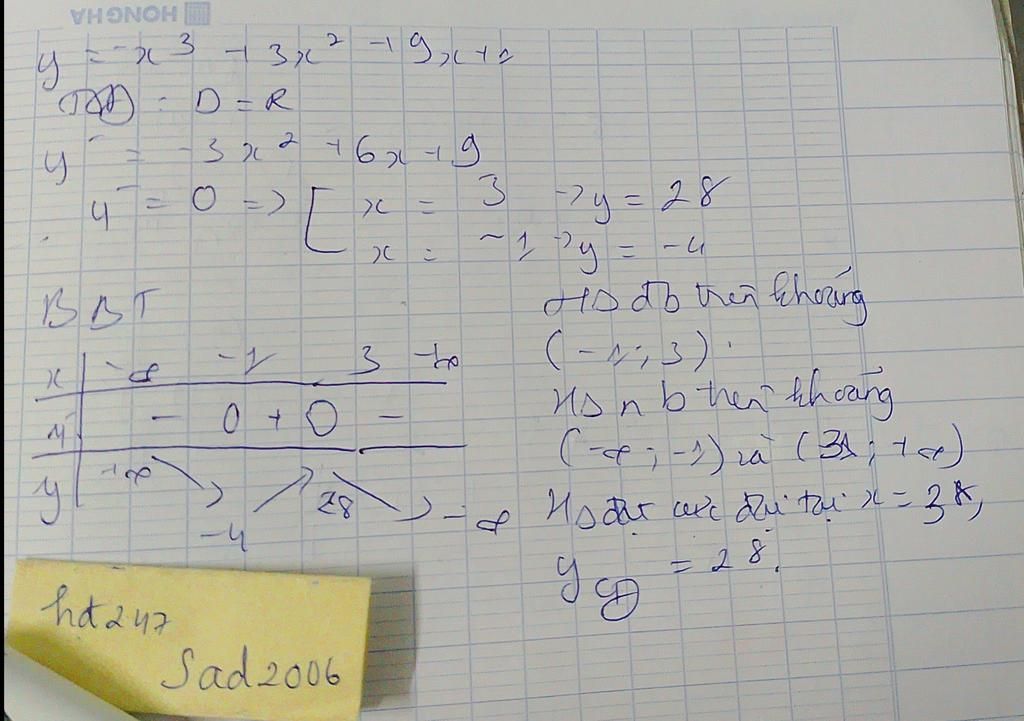 HONG HA
y = -x³ + 3x² + 9x + 1
TXĐ : D = R
y' = -3x² + 6x + 9
y' = 0 => [ x = 3 → y = 28
x = -1 → y = -4
BBT
x | -∞ -1 3 +∞
y' | - 0 + 0 -
y | +∞ -4 28 -∞
HS đb trên khoảng
(-1; 3).
HS nb trên khoảng
(-∞; -1) và (3; +∞)
HS đạt cực đại tại x = 3,
y CĐ = 28.
hdt247
Sad2006